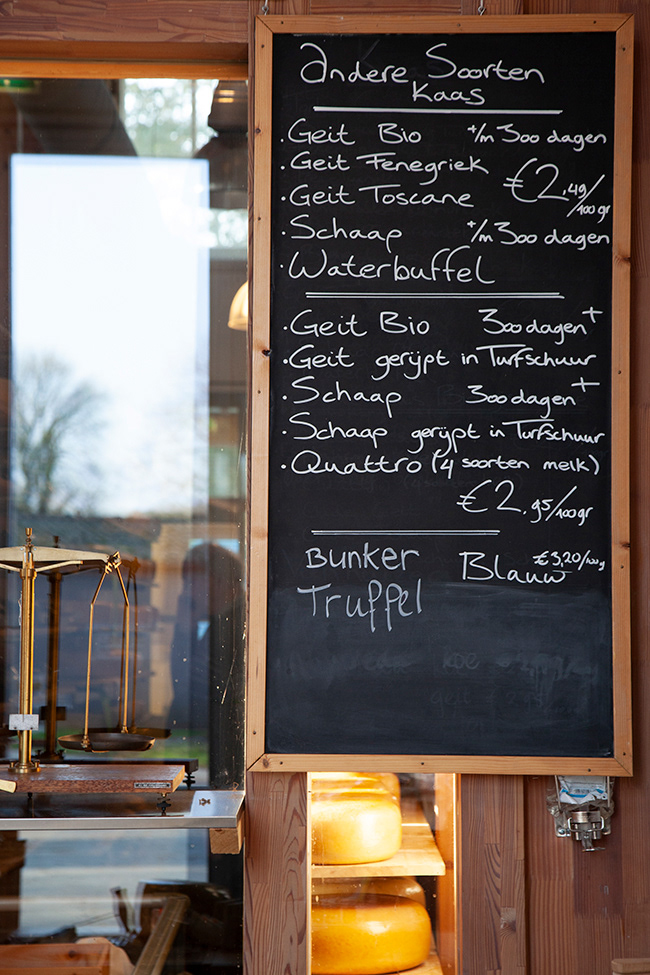 Andere Soorten
Kaas
· Geit Bio +/m 300 dagen
· Geit Fenegriek
· Geit Toscane €2,49/100gr
· Schaap +/m 300 dagen
· Waterbuffel
· Geit Bio 300 dagen+
· Geit gerijpt in Turfschuur
· Schaap 300 dagen+
· Schaap gerijpt in Turfschuur
· Quattro (4 soorten melk)
€2.95/100gr
Bunker Blauw €3,20/100g
Truffel